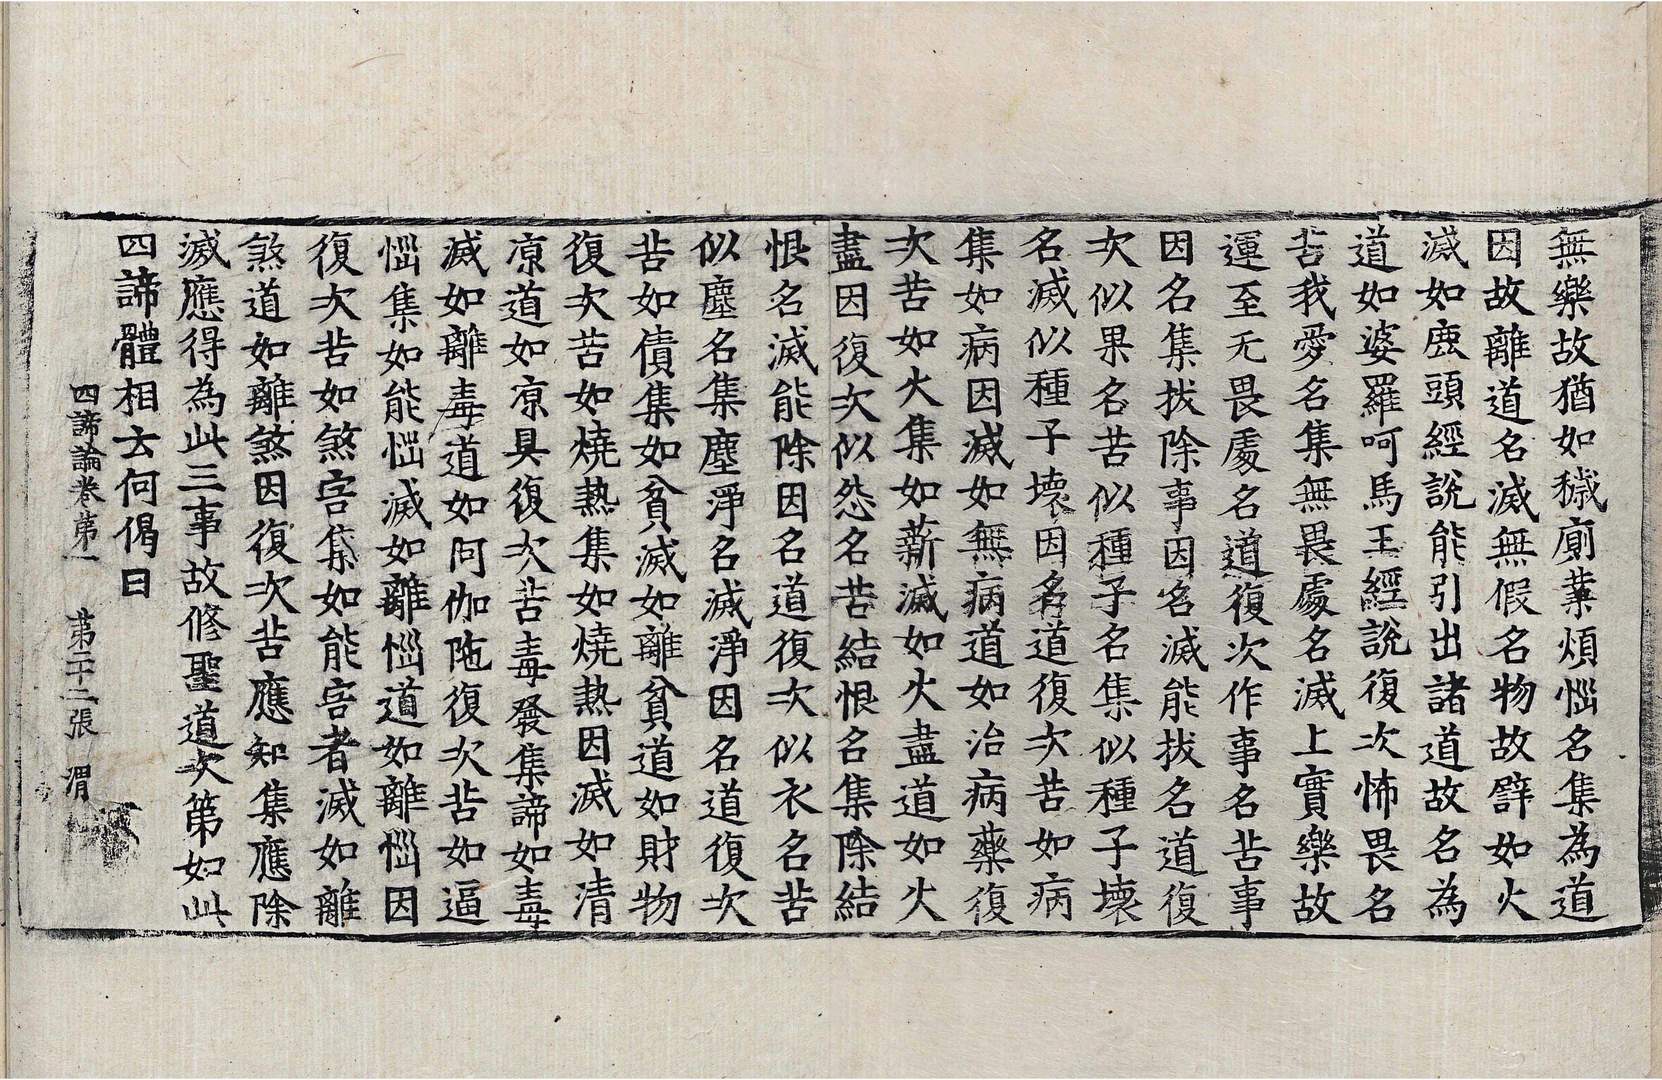 無樂故猶如穢廁葉煩惱名集為道
因故離道名滅無假名物故譬如火
滅如鹿頭經說能引出諸道故名為
道如婆羅呵馬王經說復次怖畏名
苦我愛名集無畏處名滅上實樂故
運至无畏處名道復次作事名苦事
因名集拔除事因名滅能拔名道復
次似果名苦似種子名集似種子壞
名滅似種子壞因名道復次苦如病
集如病因滅如無病道如治病藥復
次苦如火集如薪滅如火盡道如火
盡因復次似怨名苦結恨名集除結
恨名滅能除因名道復次似衣名苦
似塵名集塵淨名滅淨因名道復次
苦如債集如貧滅如離貧道如財物
復次苦如燒熱集如燒熱因滅如清
凉道如凉具復次苦毒發集諦如毒
滅如離毒道如阿伽陁復次苦如逼
惱集如能惱滅如離惱道如離惱因
復次苦如煞害集如能害者滅如離
煞道如離煞因復次苦應知集應除
滅應得為此三事故修聖道次第如此
四諦體相云何偈曰
四諦論卷第一 第十二張 渭